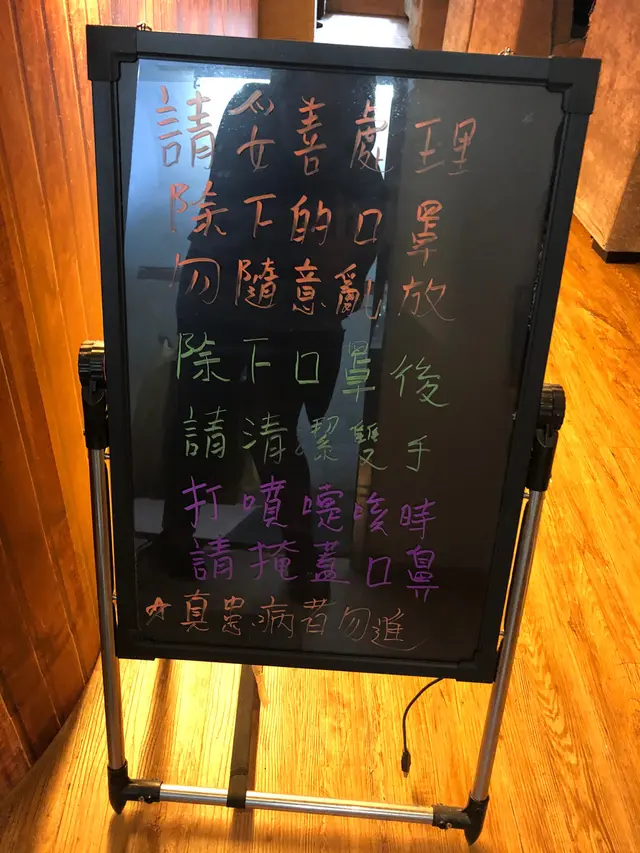 請妥善處理
除下的口罩
勿隨意亂放
除下口罩後
請清潔雙手
打噴嚏咳時
請掩蓋口鼻
☆真患病者勿進